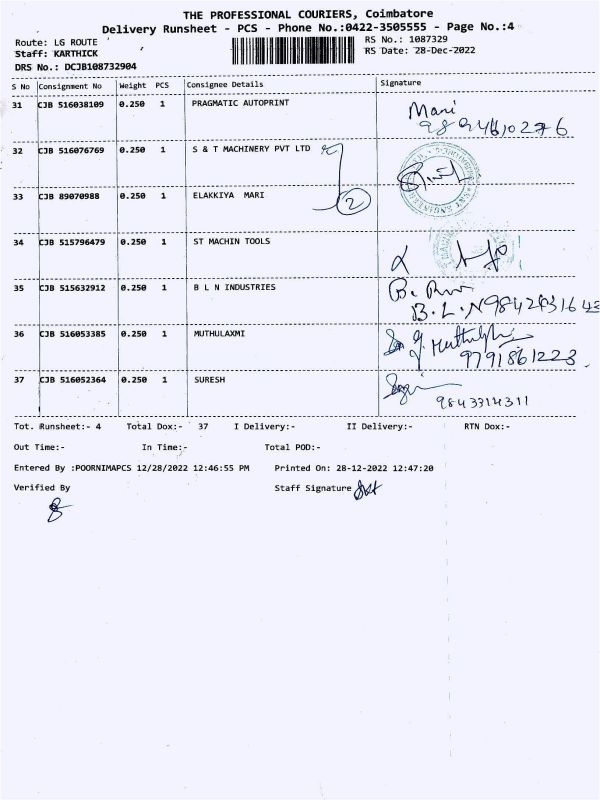 THE PROFESSIONAL COURIERS, Coimbatore
Delivery Runsheet - PCS - Phone No.:0422-3505555 - Page No.:4
Route: LG ROUTE
RS No.: 1087329
Staff: KARTHICK
RS Date: 28-Dec-2022
DRS No.: DCJB108732904
S No Consignment No Weight PCS Consignee Details Signature
31 CJB 516038109 0.250 1 PRAGMATIC AUTOPRINT
Mani
9894610276
32 CJB 516076769 0.250 1 S & T MACHINERY PVT LTD
33 CJB 89070988 0.250 1 ELAKKIYA MARI
2
34 CJB 515796479 0.250 1 ST MACHIN TOOLS
35 CJB 515632912 0.250 1 B L N INDUSTRIES
B.L.N 9842431643
36 CJB 516053385 0.250 1 MUTHULAXMI
9791861223.
37 CJB 516052364 0.250 1 SURESH
9843314311
Tot. Runsheet:- 4 Total Dox:- 37 I Delivery:- II Delivery:- RTN Dox:-
Out Time:- In Time:- Total POD:-
Entered By :POORNIMAPCS 12/28/2022 12:46:55 PM Printed On: 28-12-2022 12:47:20
Verified By Staff Signature